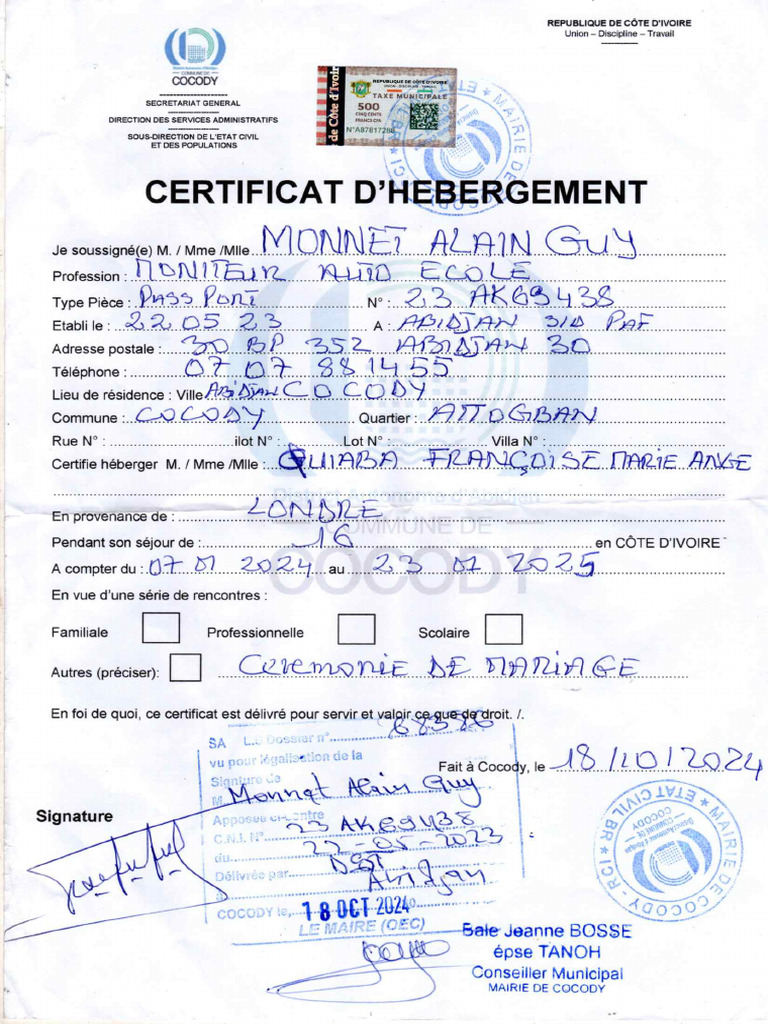 REPUBLIQUE DE CÔTE D'IVOIRE
Union – Discipline – Travail
COMMUNE DE
COCODY
SECRETARIAT GENERAL
DIRECTION DES SERVICES ADMINISTRATIFS
SOUS-DIRECTION DE L'ETAT CIVIL
ET DES POPULATIONS
de Côte d'Ivoire
REPUBLIQUE DE CÔTE D'IVOIRE
UNION - DISCIPLINE - TRAVAIL
TAXE MUNICIPALE
500
CINQ CENTS
FRANCS CFA
MAIRIE DE COCODY - RCI
CERTIFICAT D'HEBERGEMENT
Je soussigné(e) M. / Mme /Mlle MONNET ALAIN GUY
Profession : MONITEUR AUTO ECOLE
Type Pièce : PASSPORT N° : 23 AK69438
Etabli le : 22 05 23 A : ABIDJAN S/D PAF
Adresse postale : 30 BP 352 ABIDJAN 30
Téléphone : 07 07 88 14 55
Lieu de résidence : Ville ABIDJAN COCODY
Commune : COCODY Quartier : ATTOGBAN
Rue N° : ilot N° : Lot N° : Villa N° :
Certifie héberger M. / Mme /Mlle : QUIABA FRANÇOISE MARIE ANGE
En provenance de : LONDRE
Pendant son séjour de : 16 en CÔTE D'IVOIRE
A compter du : 07 01 2024 au 23 01 2025
COMMUNE DE
COCODY
En vue d'une série de rencontres :
Familiale Professionnelle Scolaire
Autres (préciser): Ceremonie DE MARIAGE
En foi de quoi, ce certificat est délivré pour servir et valoir ce que de droit. /.
Fait à Cocody, le 18/10/2024
Signature
SA L.G Dossier n°
vu pour légalisation de la
Signature de
M. Monnet Alain Guy
Apposée ci-contre
C.N.I. N° 23 AK69438
du 22-05-2023
Délivrée par DST
à Abidjan
COCODY le, 18 OCT 2024
LE MAIRE (OEC)
MAIRIE DE COCODY - RCI
ETAT CIVIL
COMMUNE DE
COCODY
Bale Jeanne BOSSE
épse TANOH
Conseiller Municipal
MAIRIE DE COCODY